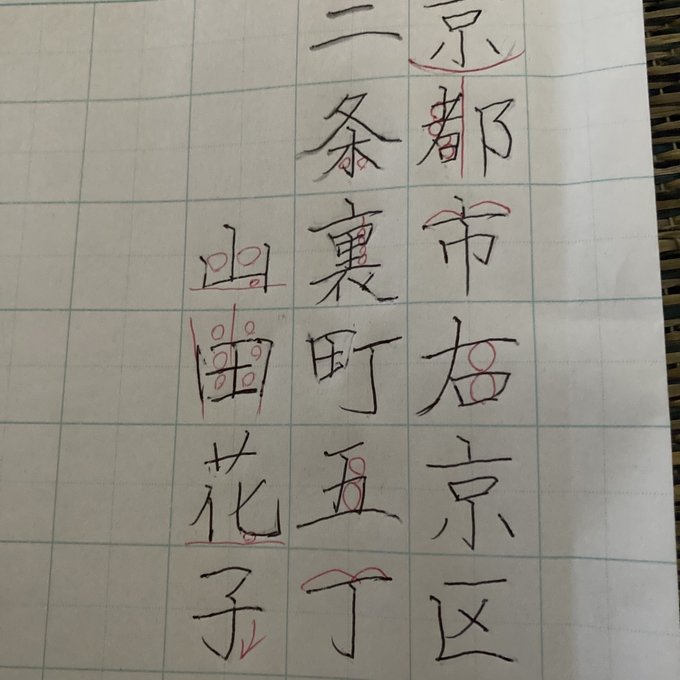 京都市右京区
二条裏町五丁
山田花子